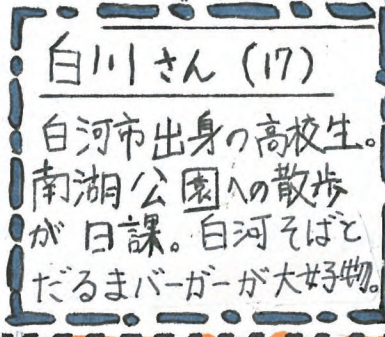 白川さん (17)
白河市出身の高校生。
南湖公園への散歩
が日課。白河そばと
だるまバーガーが大好物。